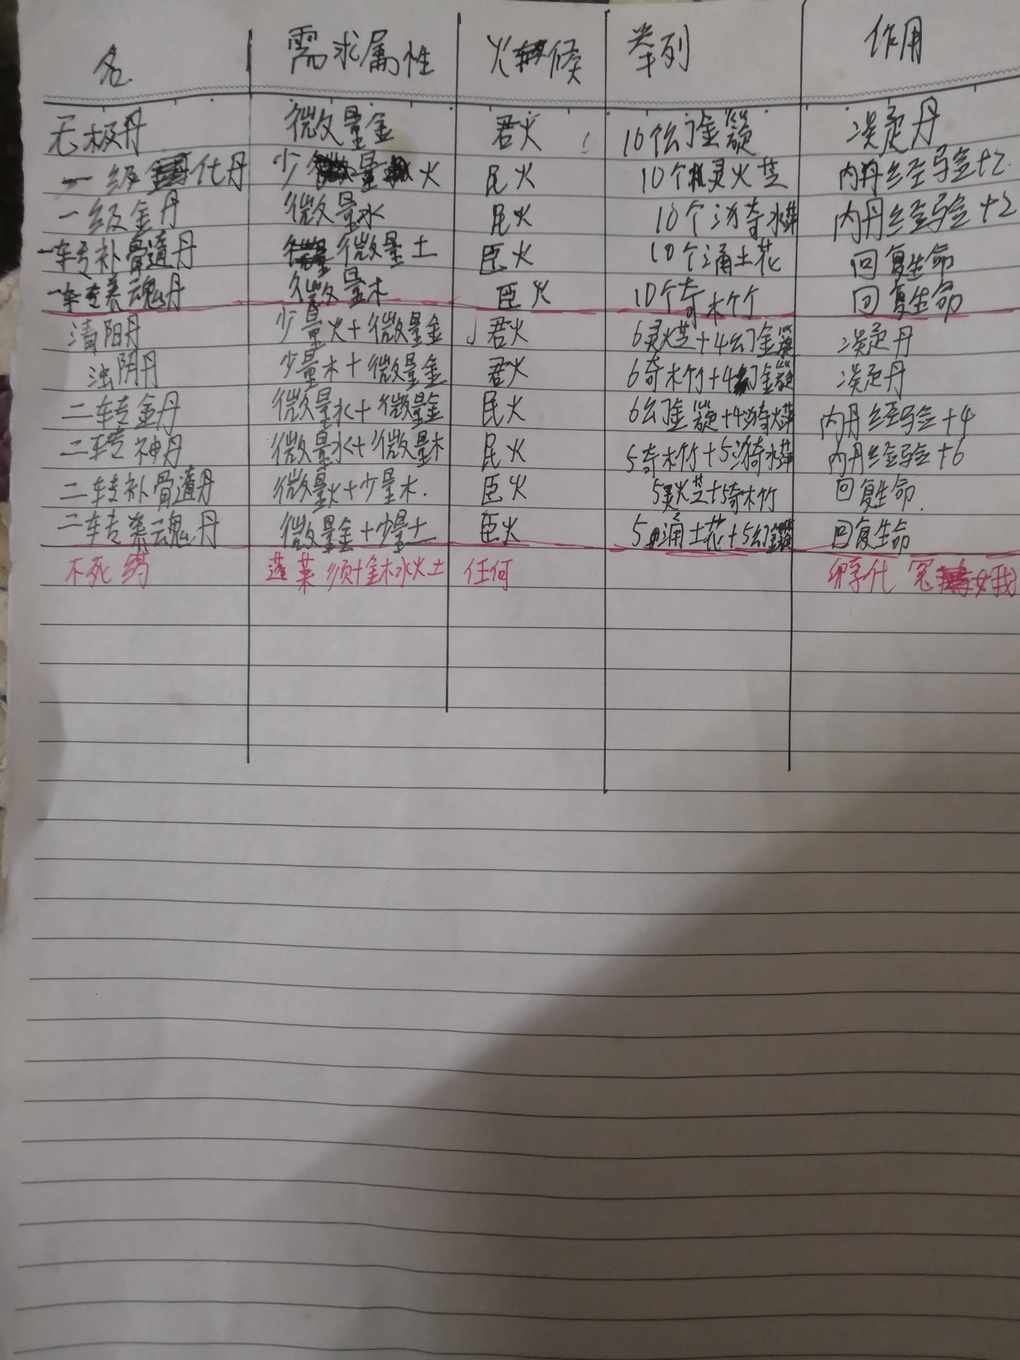 名 需求属性 火候 举列 作用
无极丹 微量金 君火 10个幻金 丹
一级化丹 少量火 民火 10个灵火芝 内丹经验+2
一级金丹 微量水 民火 10个 内丹经验+2
一转补骨道丹 微量土 臣火 10个涌土花 回复生命
一转养魂丹 微量木 臣火 10个奇木竹 回复生命
清阳丹 少量火+微量金 君火 6灵火芝+4幻金 丹
浊阴丹 少量木+微量金 君火 6奇木竹+4幻金 丹
二转金丹 微量水+微量金 民火 6幻金+4 内丹经验+4
二转神丹 微量水+微量木 民火 5奇木竹+5 内丹经验+6
二转补骨道丹 微量火+少量木. 臣火 5灵火芝+5奇木竹 回复生命.
二转养魂丹 微量金+少量土 臣火 5涌土花+5幻金 回复生命
不死药 蓬莱须+金木水火土 任何 孵化